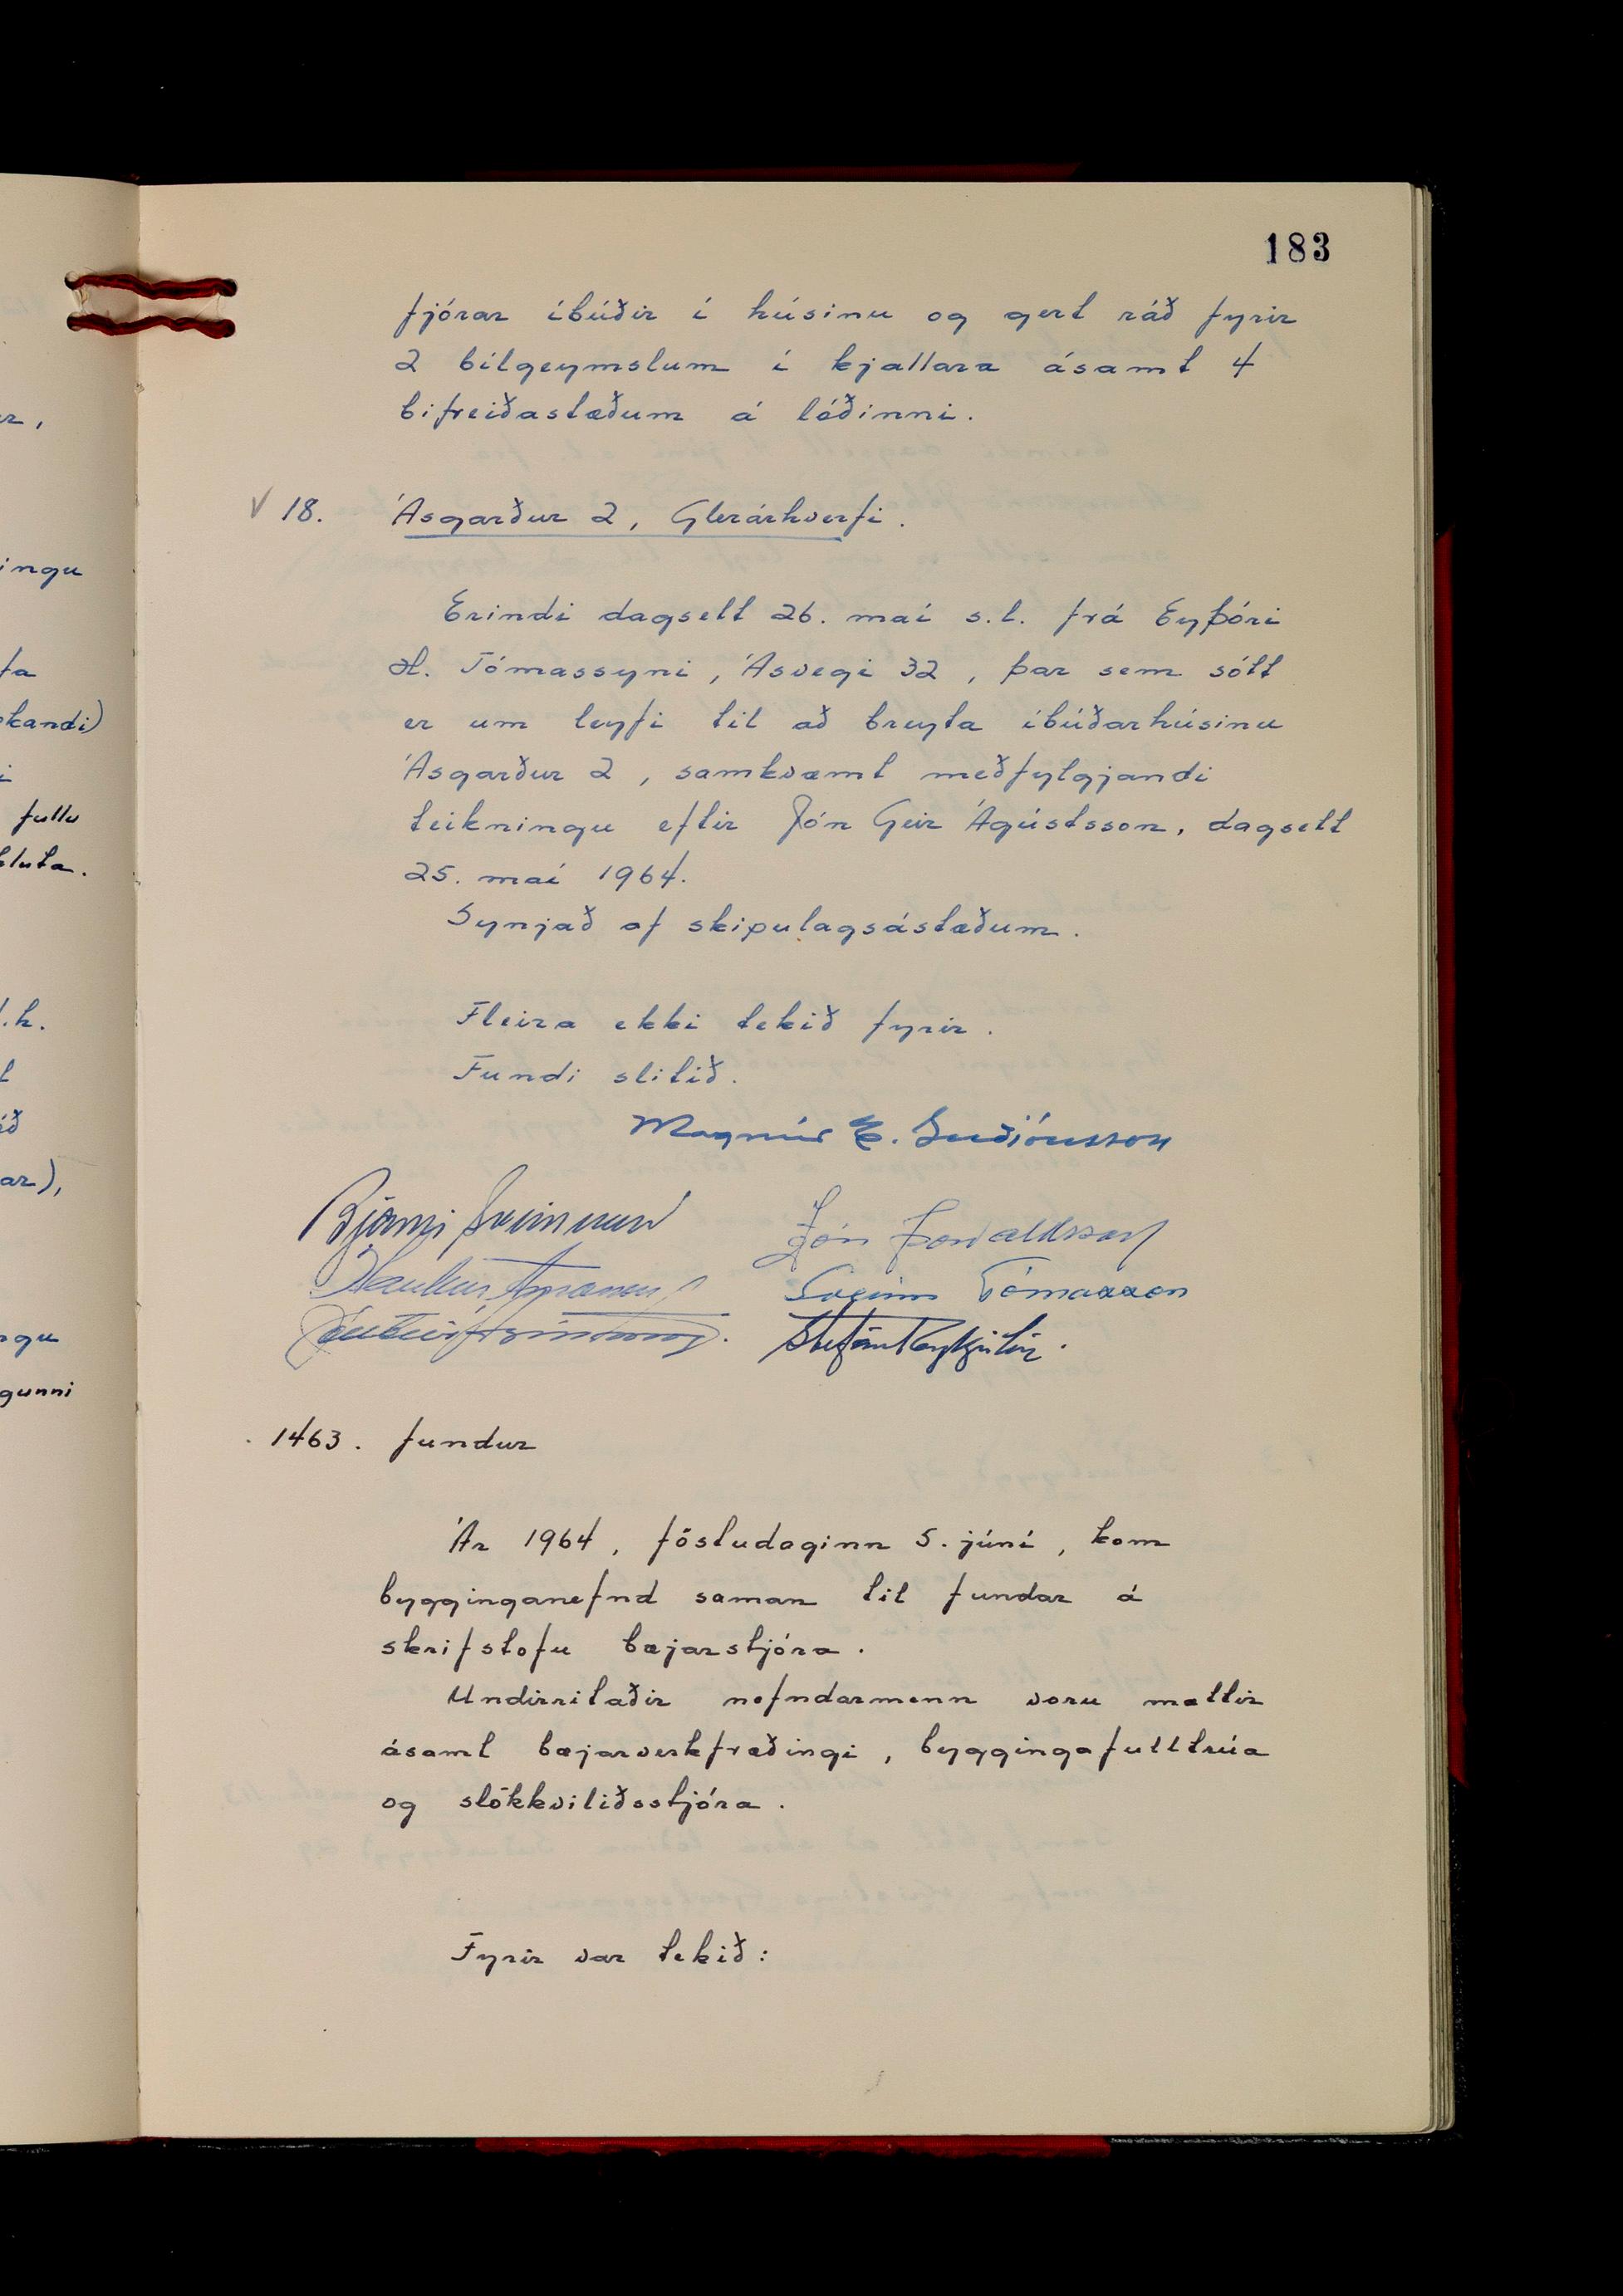 183
fjórar íbúðir í húsinu og gert ráð fyrir
2 bílgeymslum í kjallara ásamt 4
bifreiðastæðum á lóðinni.
V 18. Ásgarður 2, Glerárhverfi.
Erindi dagsett 26. maí s.l. frá Eyþóri
H. Tómassyni, Ásvegi 32, þar sem sótt
er um leyfi til að breyta íbúðarhúsinu
Ásgarður 2, samkvæmt meðfylgjandi
teikningu eftir Jón Geir Ágústsson, dagsett
25. maí 1964.
Synjað af skipulagsástæðum.
Fleira ekki tekið fyrir.
Fundi slitið.
Magnús E. Guðjónsson
Bjarni Sveinsson Jón Þorvaldsson
Haukur Sveinn Tómasson
Stefán Reykjalín.
1463. fundur
Ár 1964, föstudaginn 5. júní, kom
bygginganefnd saman til fundar á
skrifstofu bæjarstjóra.
Undirritaðir nefndarmenn voru mættir
ásamt bæjarverkfræðingi, byggingafulltrúa
og slökkviliðsstjóra.
Fyrir var tekið: